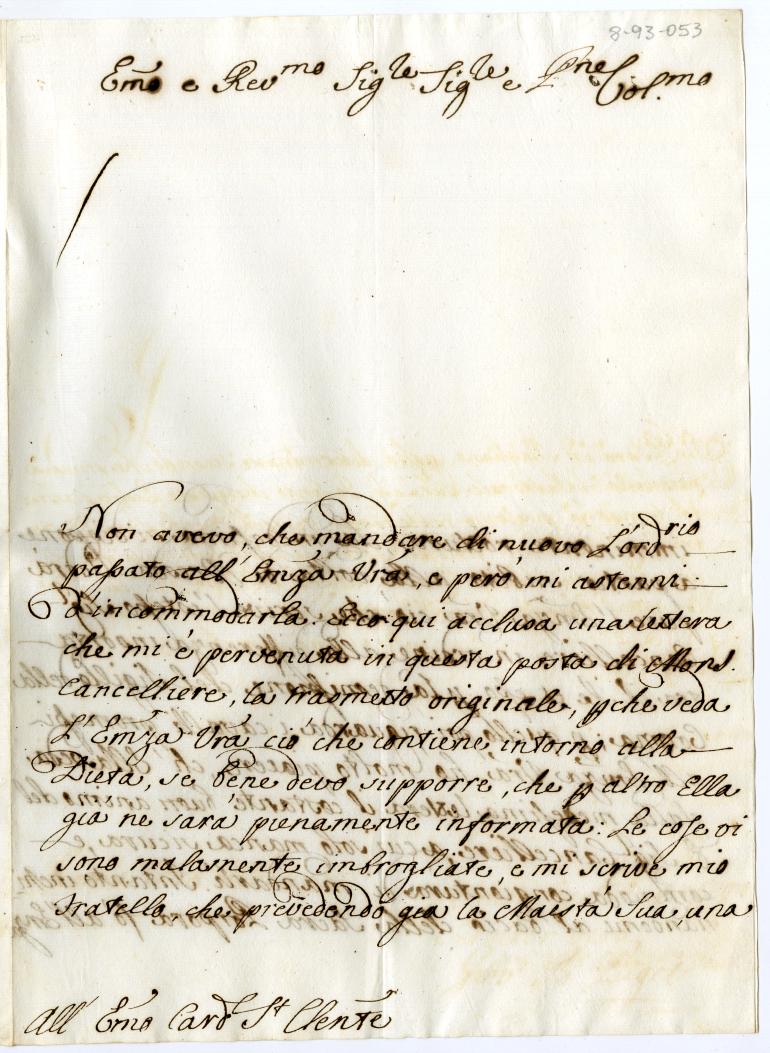 8-93-053
Em̃o e Rev.mo Sig.re Sig.re e P.ne Col.mo
Non avevo, che mandare di nuovo L'ord.rio
passato all' Em̃za Vrã, e però mi astenni
d'incommodarla. Ecco qui acclusa una lettera
che mi è pervenuta in questa posta di Mons.
Cancelliere, la trasmetto originale, pche veda
L'Em̃za Vrã ciò che contiene intorno alla
Dieta, se bene devo supporre, che p altro Ella
già ne sarà pienamente informata: Le cose vi
sono malamente imbrogliate, e mi scrive mio
Fratello, che prevedendo già la Maestà Sua, una
All' Em̃o Card. S.t Clente